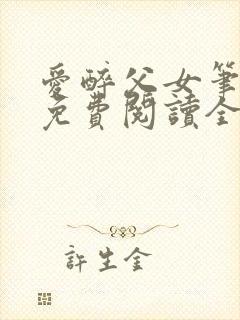 愛醉父女筆
免費閱讀全
許生金